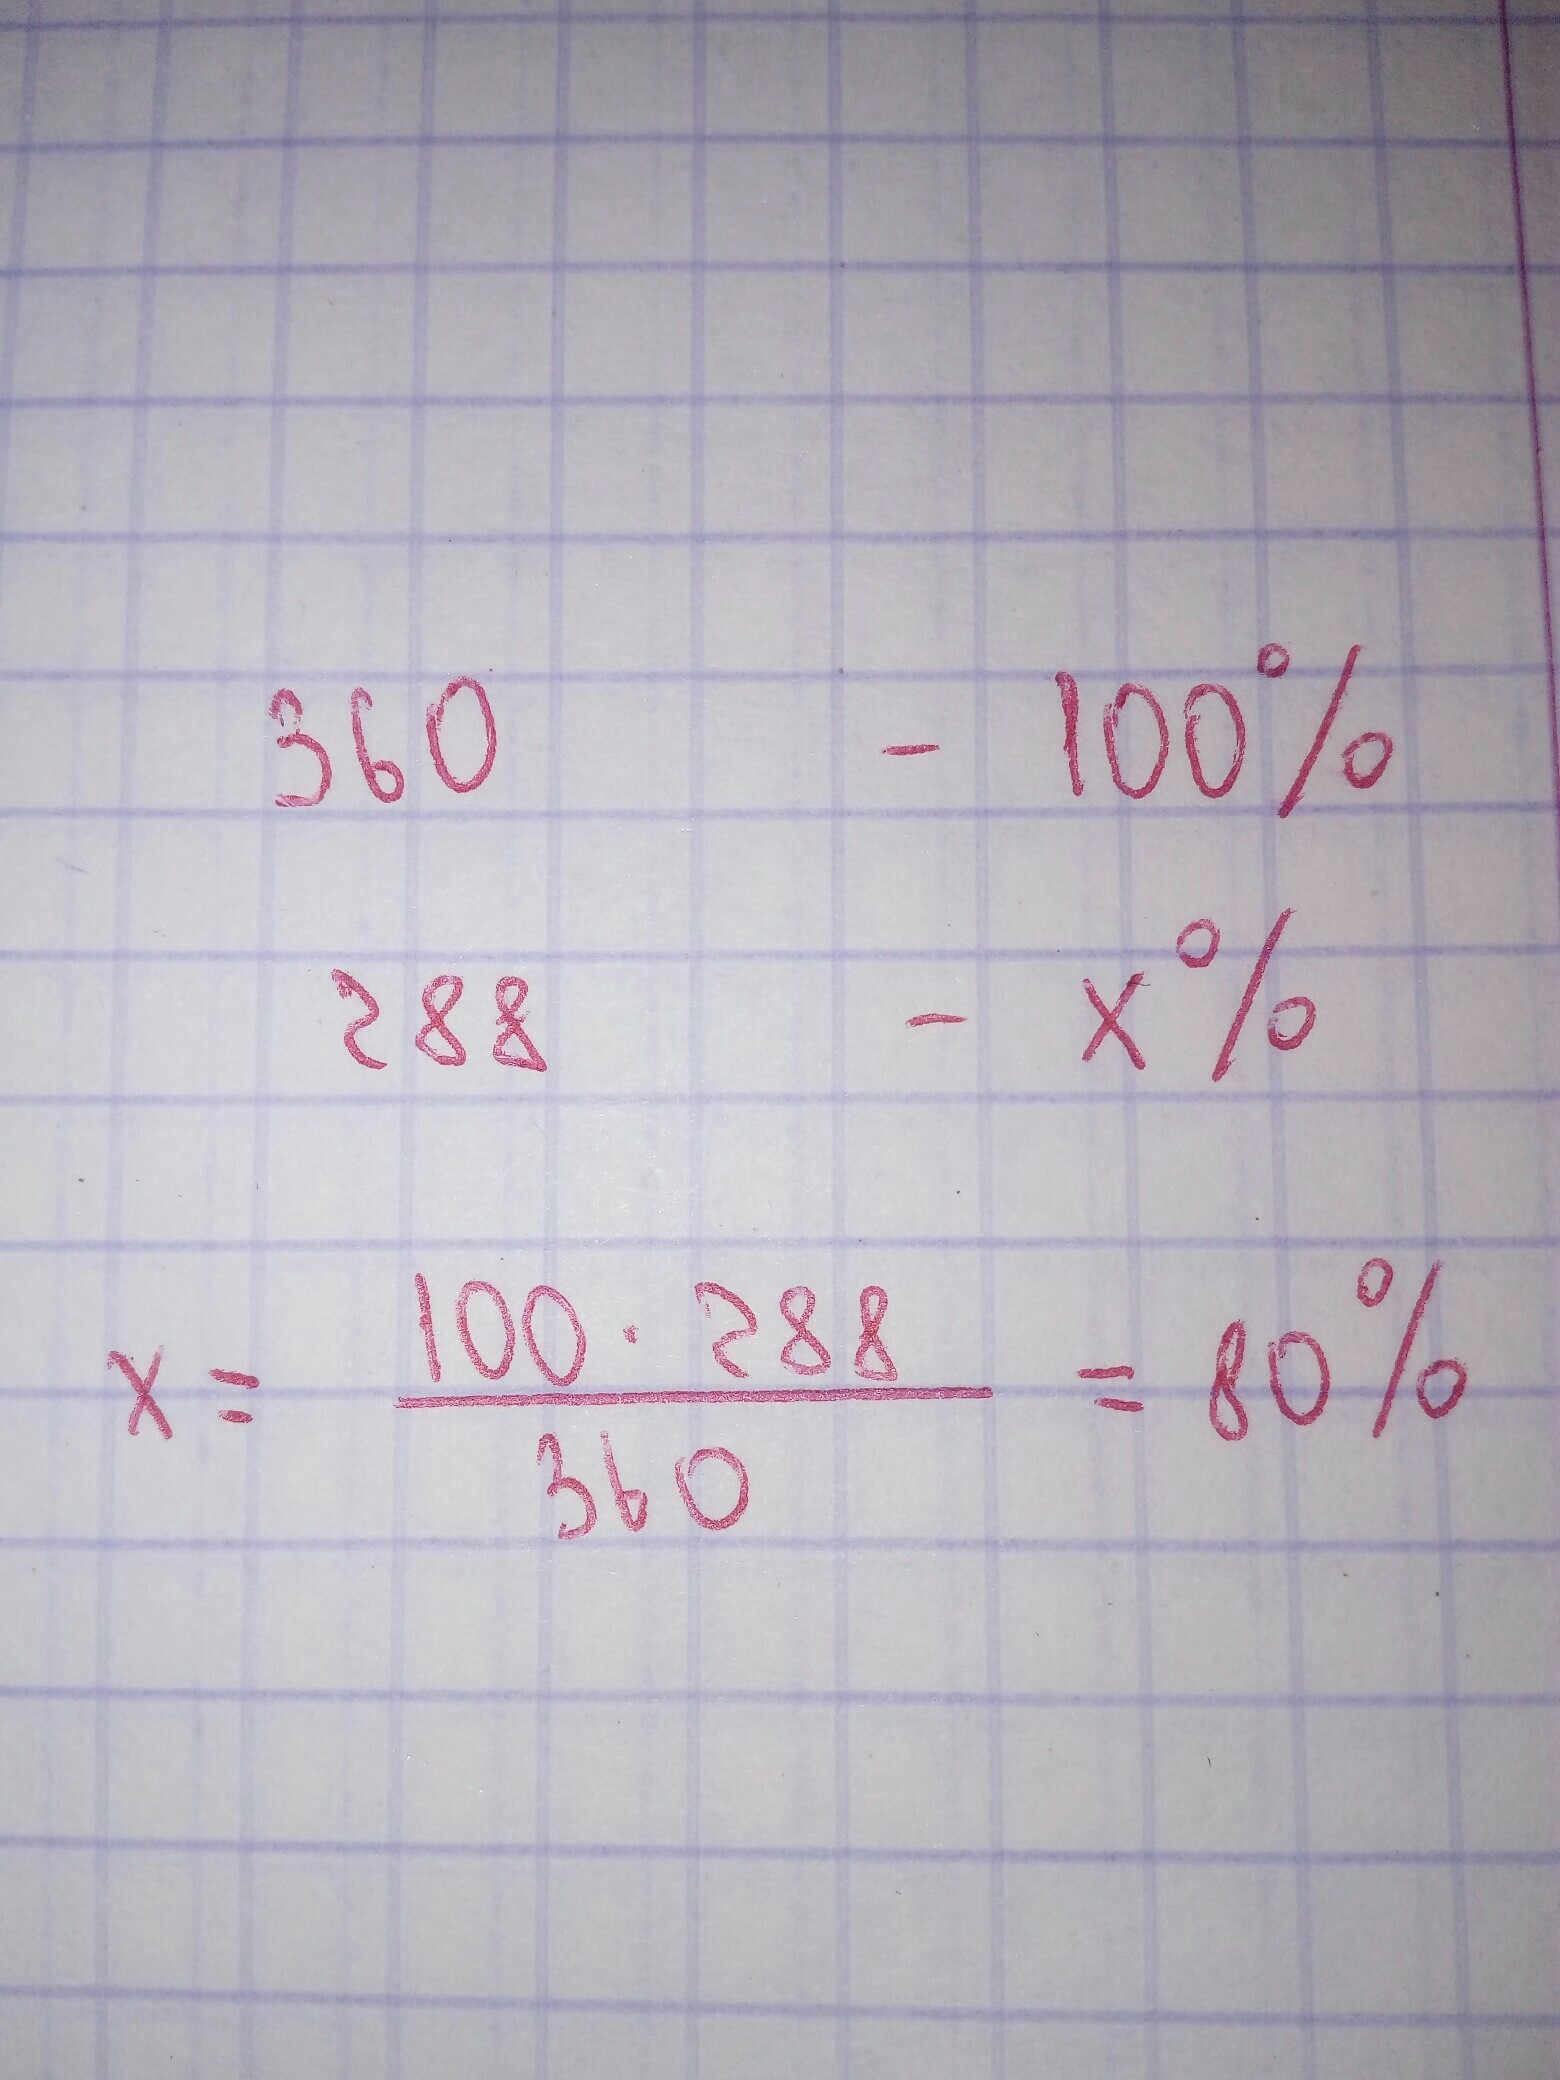 360 - 100%
288 - x%
x = 100 · 288 / 360 = 80%